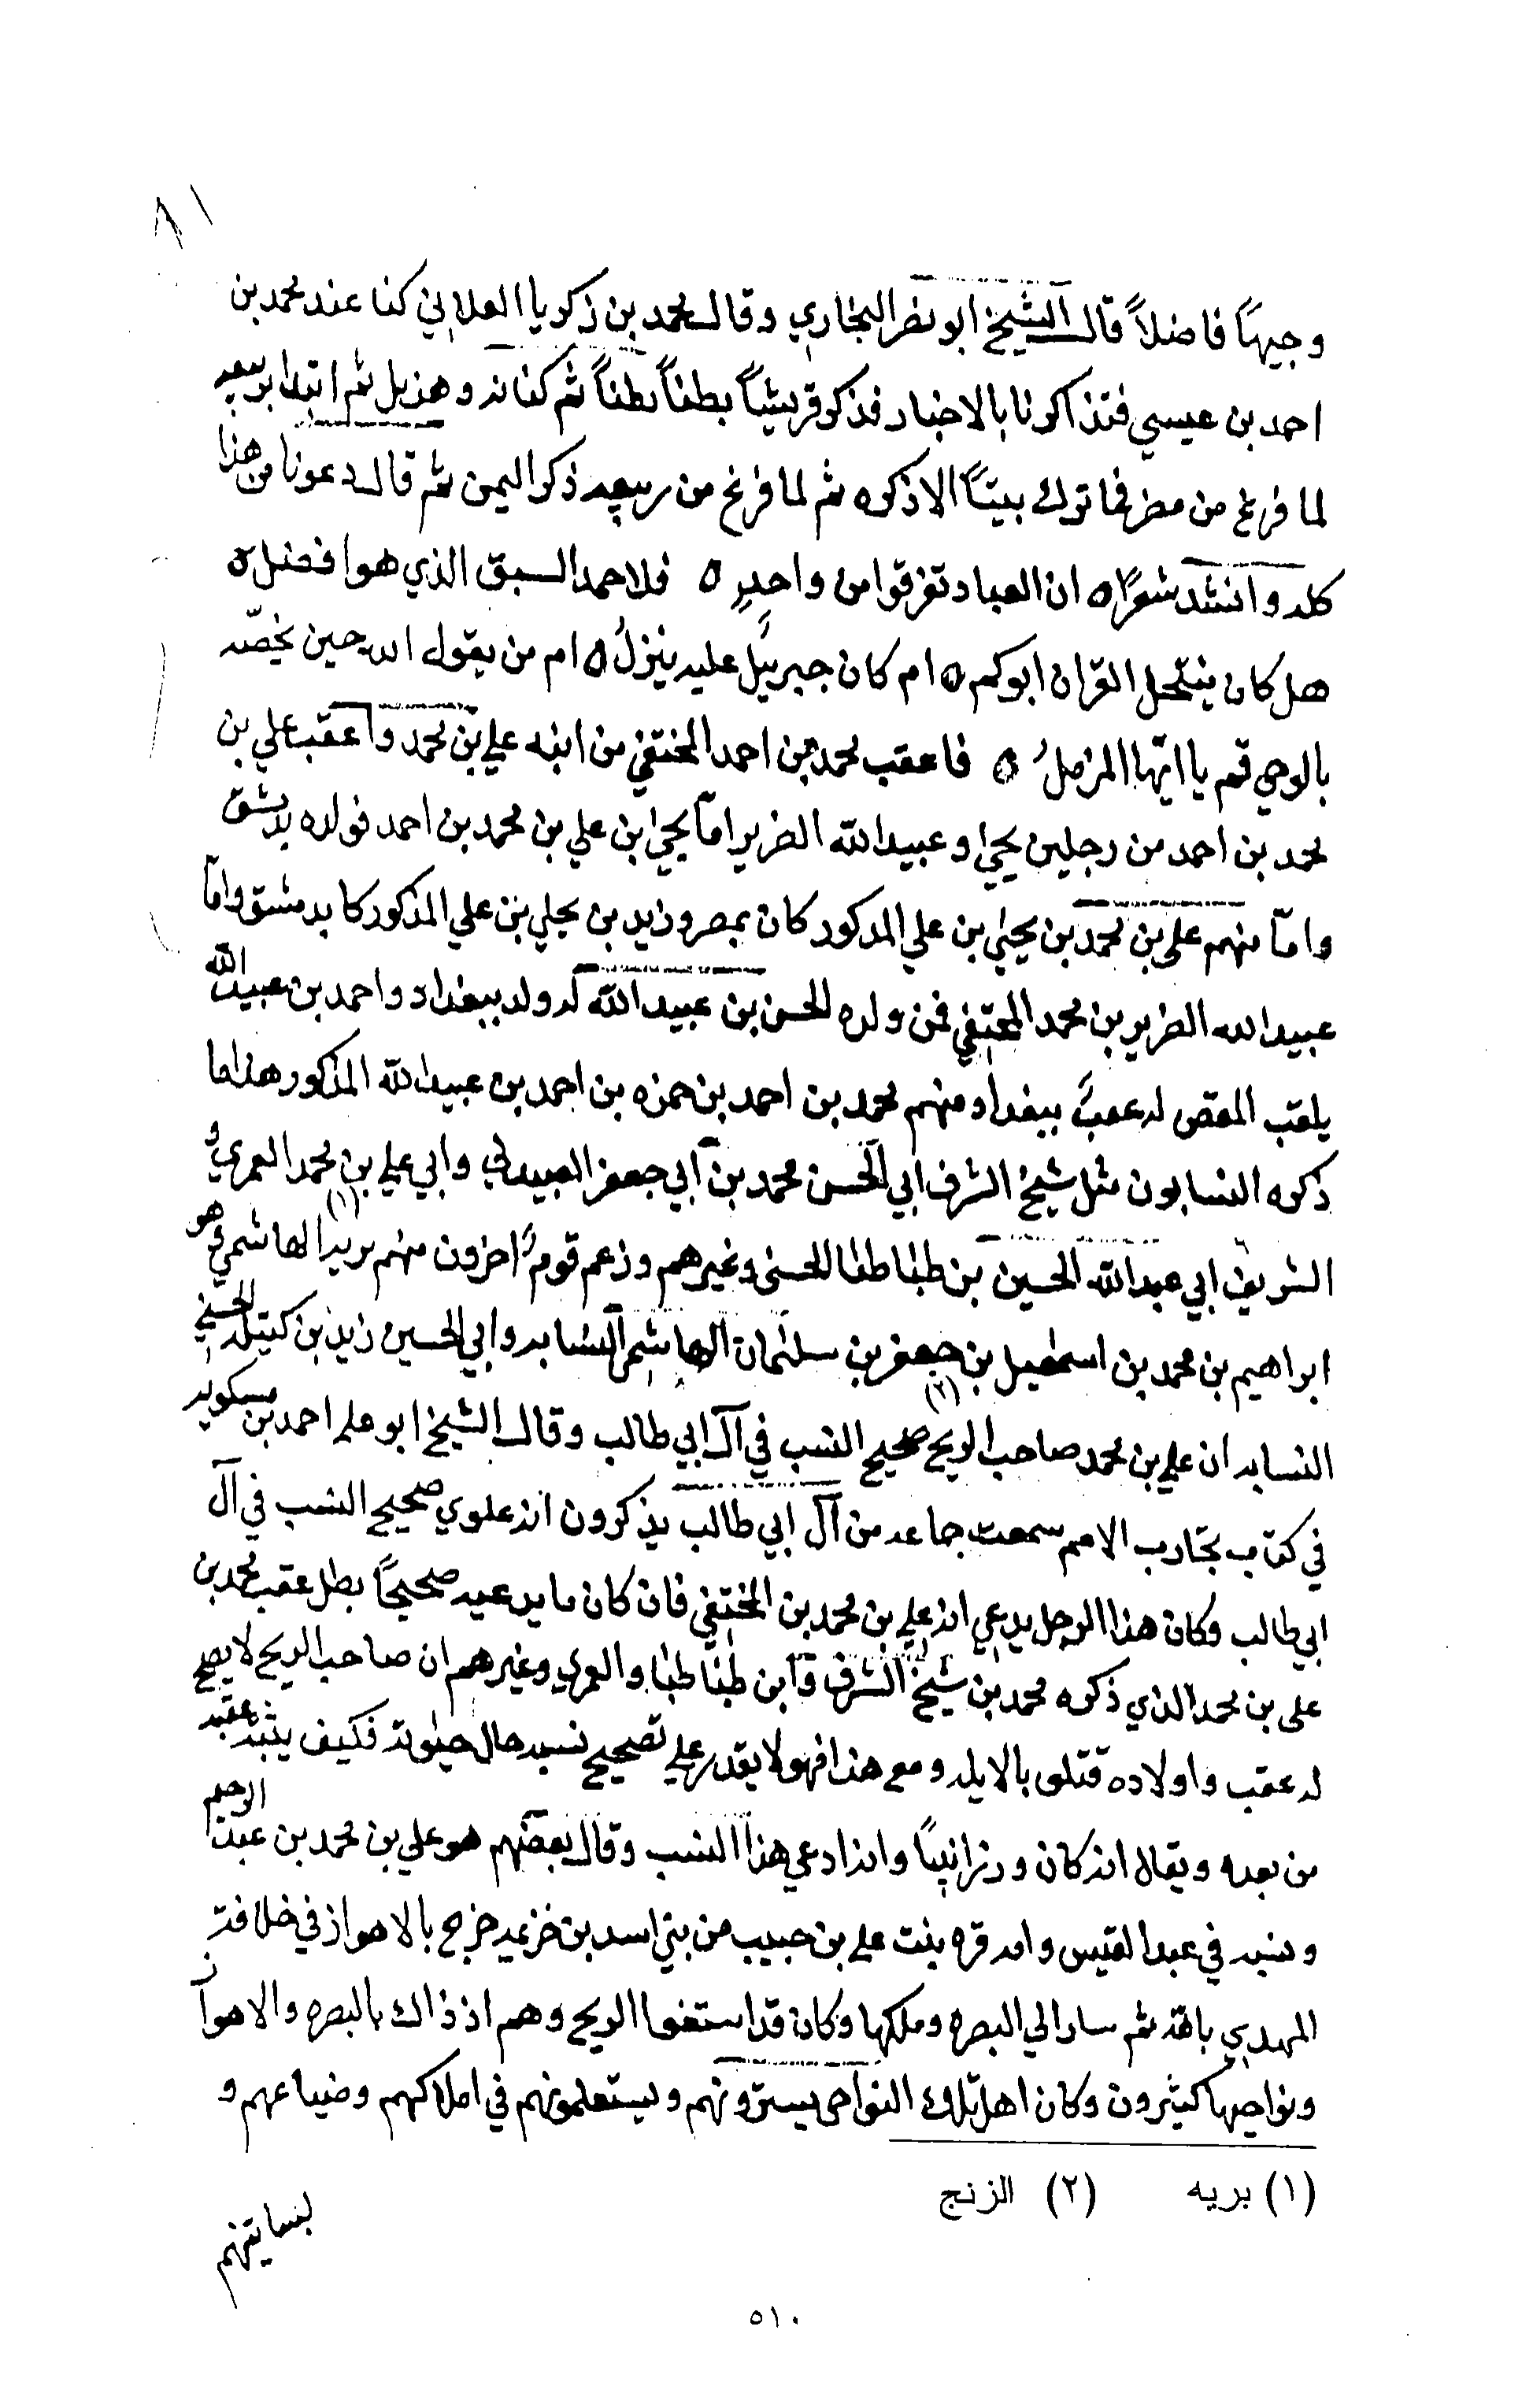 ٨١
وجيهاً فاضلاً قال الشيخ ابو نصر البخاري وقال محمد بن زكريا العلاني كنا عند محمد بن
احمد بن عيسي فتذاكونا بالاخبار فذكر قريشياً بطناً بطناً ثم كنانه وهذيل ثم ابتدا بربيعه
لما فرغ من مضر فما ترك بيتاً الا ذكره ثم لما فرغ من ربيعه ذكر اليمن ثم قال دعونا من هذا
كله وانشد شعراً ه ان العباد تفرقوا من واحدٍ ه فلاحمد السبق الذي هو افضل ه
هل كان ينتحل القران ابوكم ه ام كان جبرييل عليه ينزلُ ه ام من يقول الله حين يخصّه
بالوحي قم يا ايّها المزملُ ه فاعقب محمد بن احمد المختفي من ابنه علي بن محمد واعقب علي بن
محمد بن احمد من رجلين يحيى وعبيد الله الضرير امّا يحيى ابن علي بن محمد بن احمد فولده بدمشق
وامّا منهم علي بن محمد بن يحيى بن علي المدكور كان بمصر وزيد بن يحيى بن علي المذكور كا بدمشق وامّا
عبيد الله الضرير بن محمد المختفي فمن ولده الحسن بن عبيد الله له ولد ببغداد واحمد بن عبيد الله
يلقب المقص له عقبٌ ببغداد ومنهم محمد بن احمد بن حمزه بن احمد بن عبيد الله المذكور هذا ما
ذكره النسابون مثل شيخ الشرف ابي الحسن محمد بن ابي جعفر العبيدلي وابي علي بن محمد العمري و
الشريف ابي عبد الله الحسين بن طباطبا الحسني وغيرهم وزعم قومٌ اخرون منهم بريه (١) الهاشمي وهو
ابراهيم بن محمد بن اسمعيل بن جعفر بن سليمان الهاشمي النسابه وابي الحسين زيد بن كتيله الحسني
النسابه ان علي بن محمد صاحب الريح (٢) صحيح النسب في آل ابي طالب وقال الشيخ ابو علي احمد بن مسكويه
في كتاب تجارب الامم سمعت جماعه من آل ابي طالب يذكرون انه علوي صحيح النسب في آل
ابي طالب وكان هذا الرجل يدعي انه علي بن محمد بن المختفي فان كان ما يدعيه صحيحاً بطل عقب محمد بن
علي بن محمد الذي ذكره محمد بن شيخ الشرف وابن طباطبا والعمري وغيرهم ان صاحب الريح لا يصح
له عقب واولاده قتلوا بالايله ومع هذا فهو لا يقدر علي تصحيح نسبه حال حيوته فكيف يثبت عقبه
من بعده ويقال انه كان ورزانياً وانه ادعي هذا النسب وقال بعضهم هو علي بن محمد بن عبد الرحيم
ونسبه في عبد القيس وامه قره بنت علي بن حبيب من بني اسد بن خزيمه خرج بالاهواز في خلافة
المهدي بالله ثم سار الي البصره وملكها وكان قد استغوا الريح وهم اذ ذاك بالبصره والاهواز
ونواحيها كثيرون وكان اهل تلك النواحي يسترونهم ويستعلمونهم في املاكهم وضياعهم و
(١) بريه (٢) الزنج
بساتينهم
٥١٠